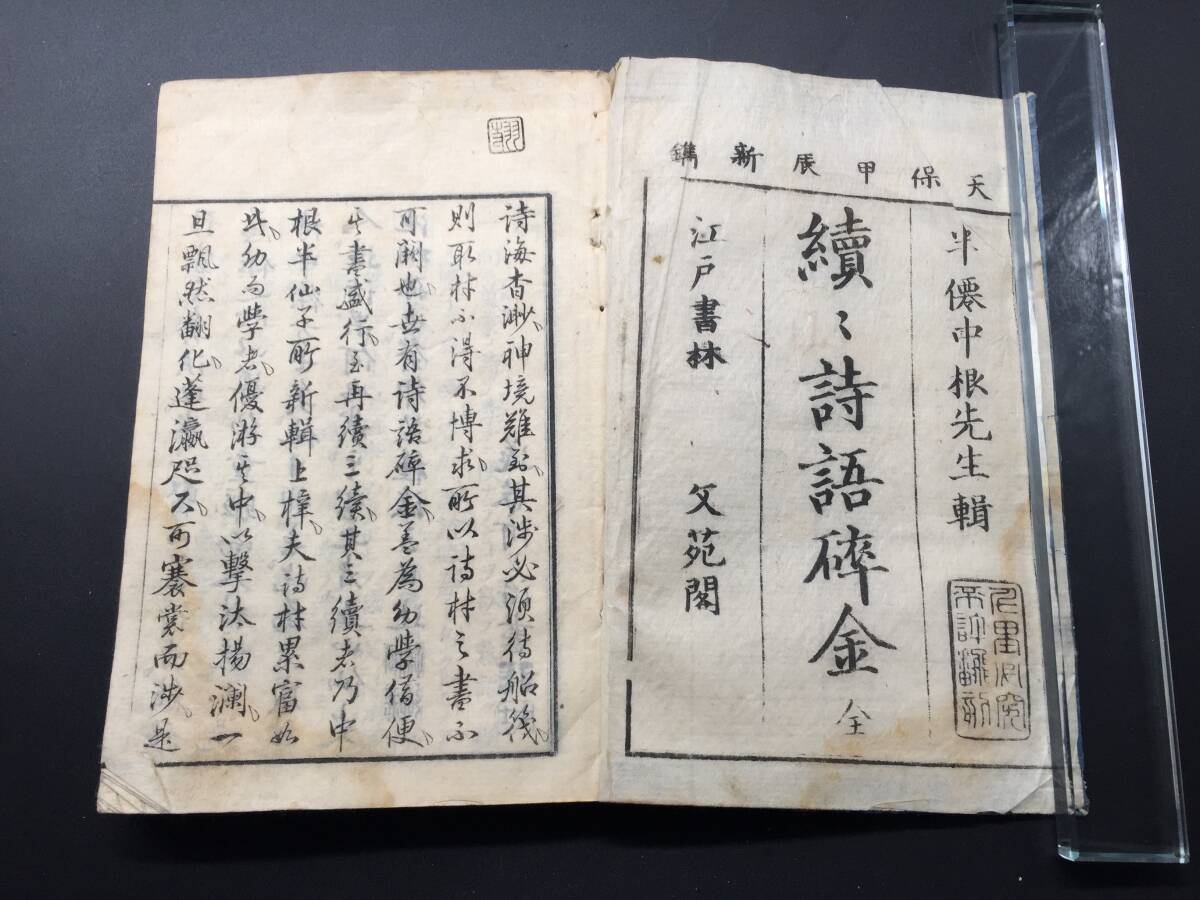 天保甲辰新鐫
半僊中根先生輯
千里必究
不許翻刻
續〻詩語碎金 全
江戸書林 文苑閣
詩海杳渺神境難到其渉必須待船筏
則取材不得不博求所以詩材之書不
可闕也世有詩語碎金善為幼學借便
其書盛行至再續三續其三續者乃中
根半仙子所新輯上梓夫詩材累富如
此幼而學者優游其中以擊汰揚瀾一
旦飄然翻化蓬瀛咫尺可褰裳而渉是